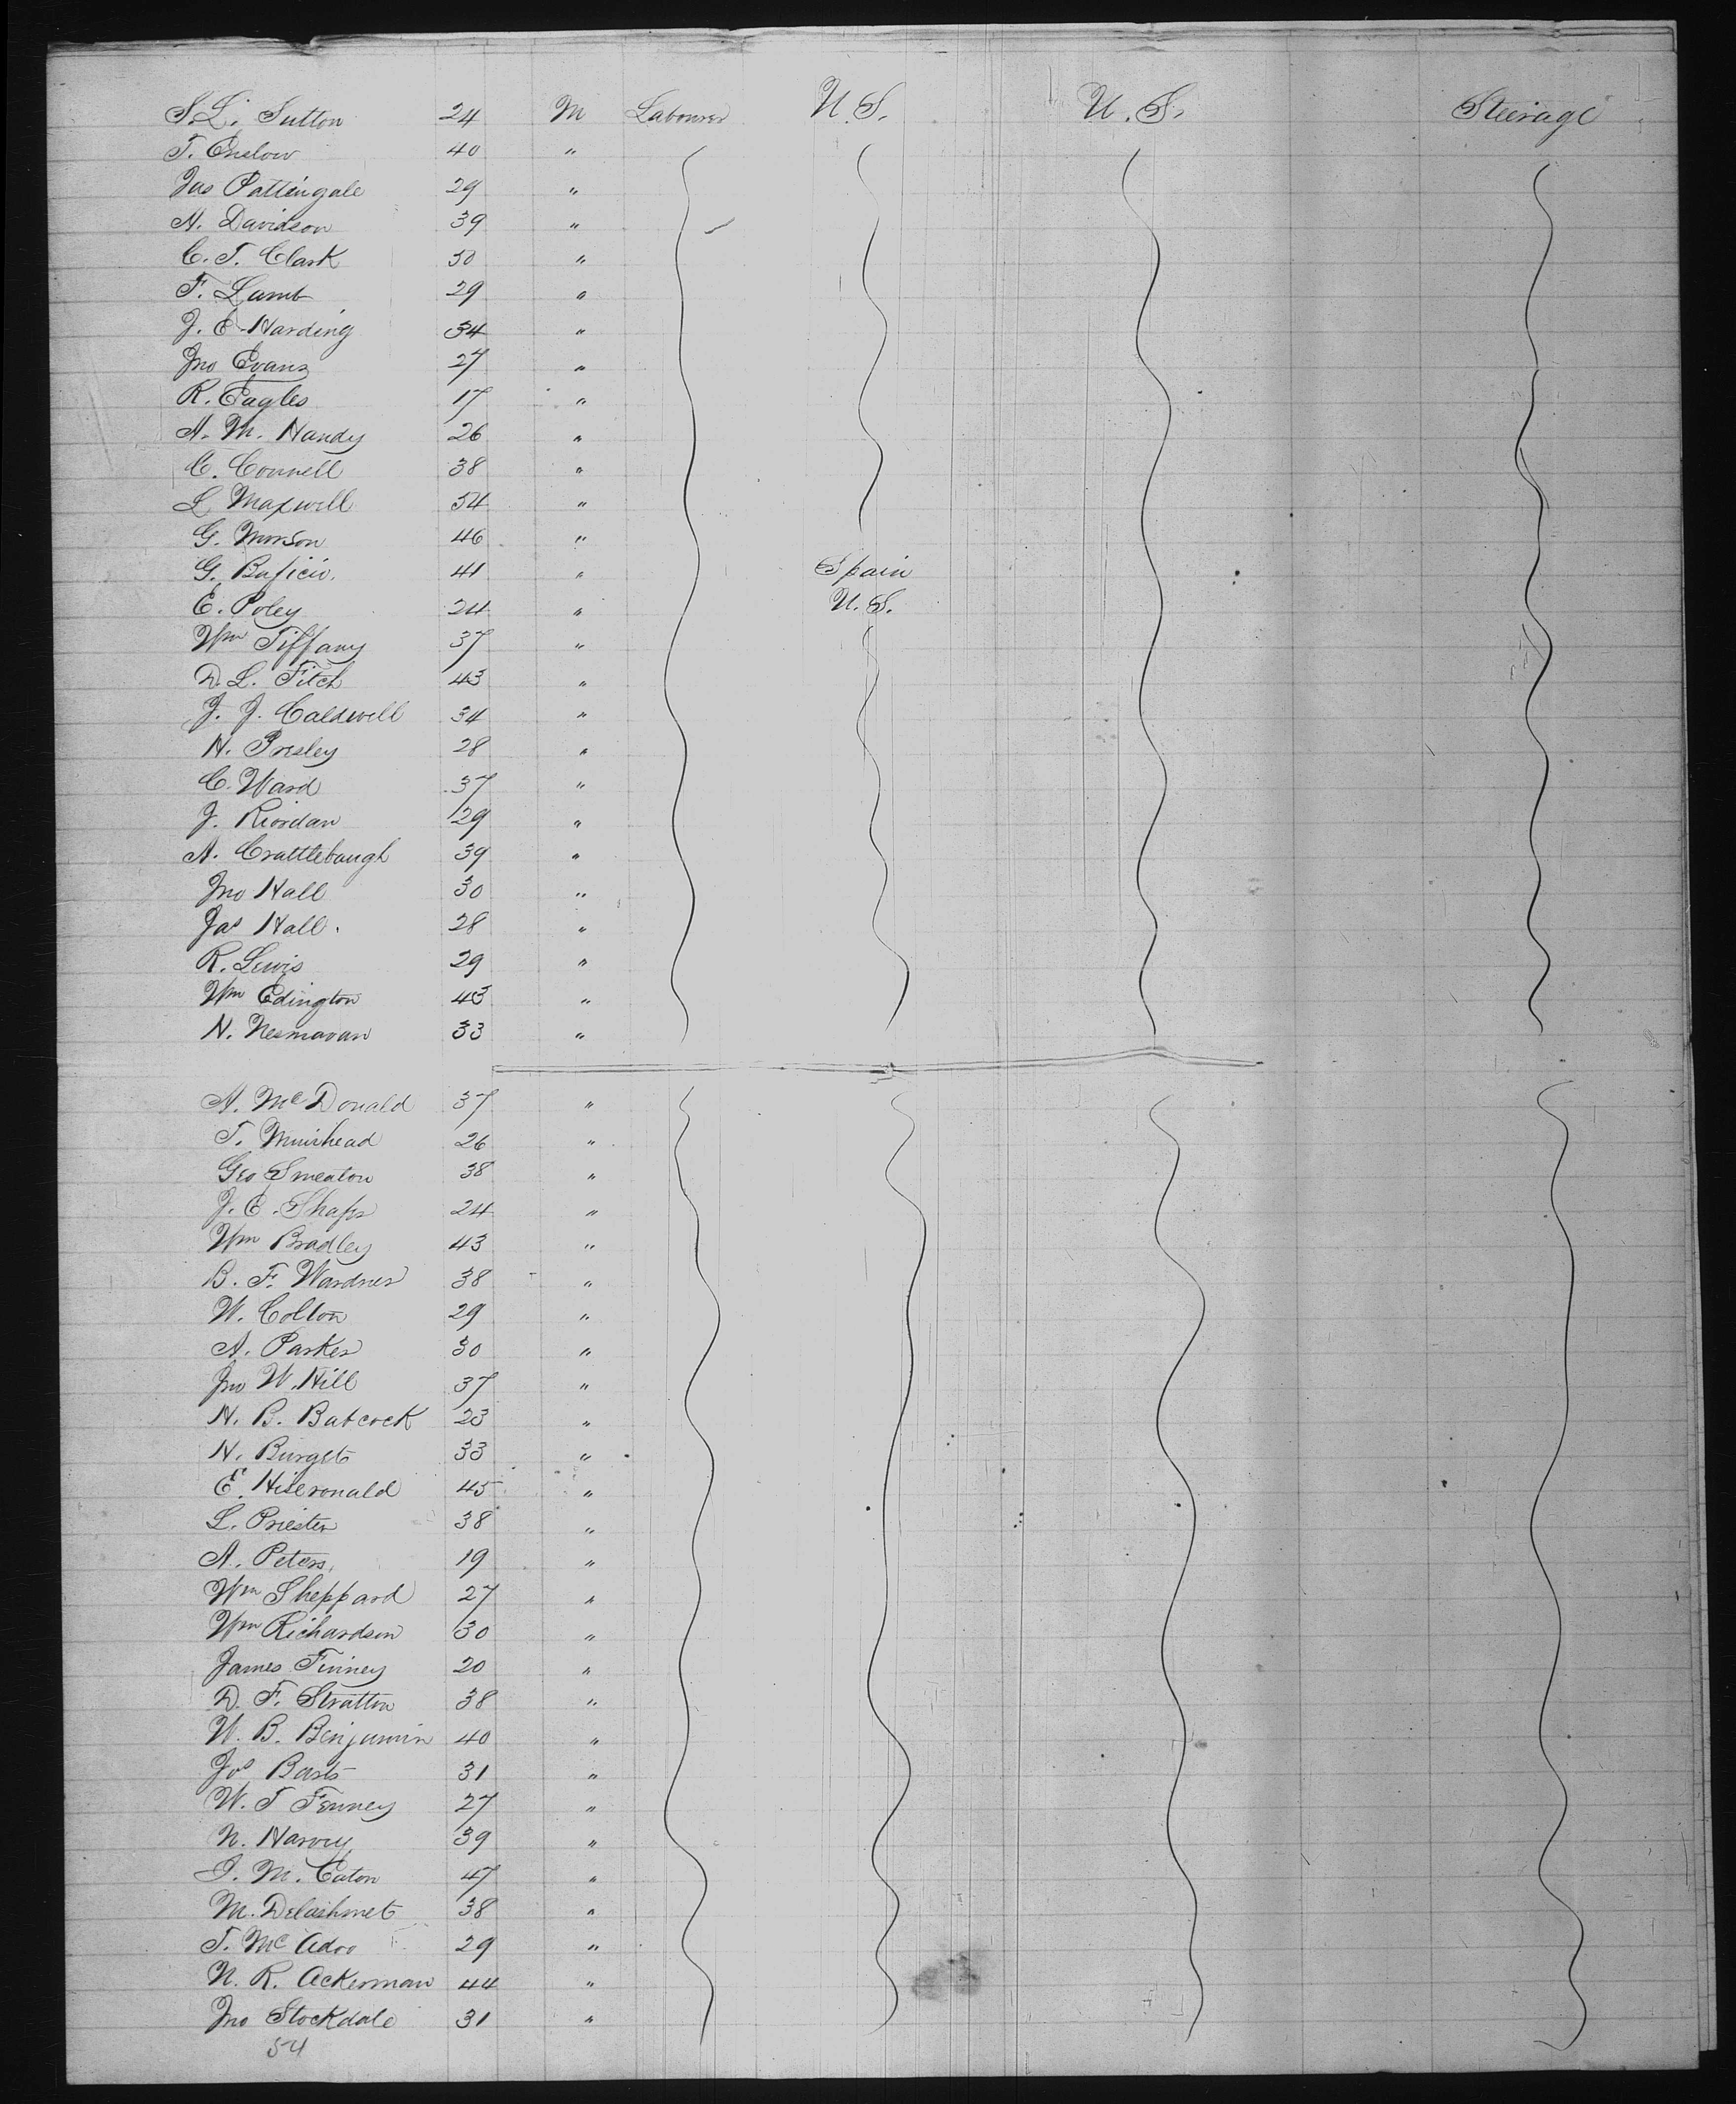 S. L. Sutton 24 M Labourer U.S. U.S. Steerage
T. Onslow 40 "
Jas Pattingale 29 "
H. Davidson 39 "
C. T. Clark 50 "
F. Lamb 29 "
J. E. Harding 34 "
Jno Evans 27 "
R. Eagles 17 "
A. M. Handy 26 "
C. Connell 38 "
L Maxwell 54 "
G. Monson 46 "
G. 41 " Spain
E. Poley 24 " U.S.
Wm Tiffany 37 "
D. L. Fitch 43 "
J. J. Caldwell 34 "
H. Presley 28 "
C. Ward 37 "
J. Riordan 29 "
A. Crattlebaugh 39 "
Jno Hall 30 "
Jas Hall. 28 "
R. Lewis 29 "
Wm Edington 43 "
N. 33 "
A. McDonald 37 "
T. Muirhead 26 "
Geo Smeaton 38 "
J. E. 24 "
Wm Bradley 43 "
B. F. Wardner 38 "
W. Colton 29 "
A. Parker 30 "
Jno W. Hill 37 "
H. B. Babcock 23 "
H. Burget 33 "
E. 45 "
L. Priester 38 "
A. Peters 19 "
Wm Sheppard 27 "
Wm Richardson 30 "
James Finney 20 "
D. F. Stratton 38 "
W. B. Benjamin 40 "
Jos Barts 31 "
W. T Fenney 27 "
N. Harvey 39 "
I. M. Eaton 47 "
M. Delashmet 38 "
T. McAdoo 29 "
N. R. Ackerman 44 "
Jno Stockdale 31 "
54